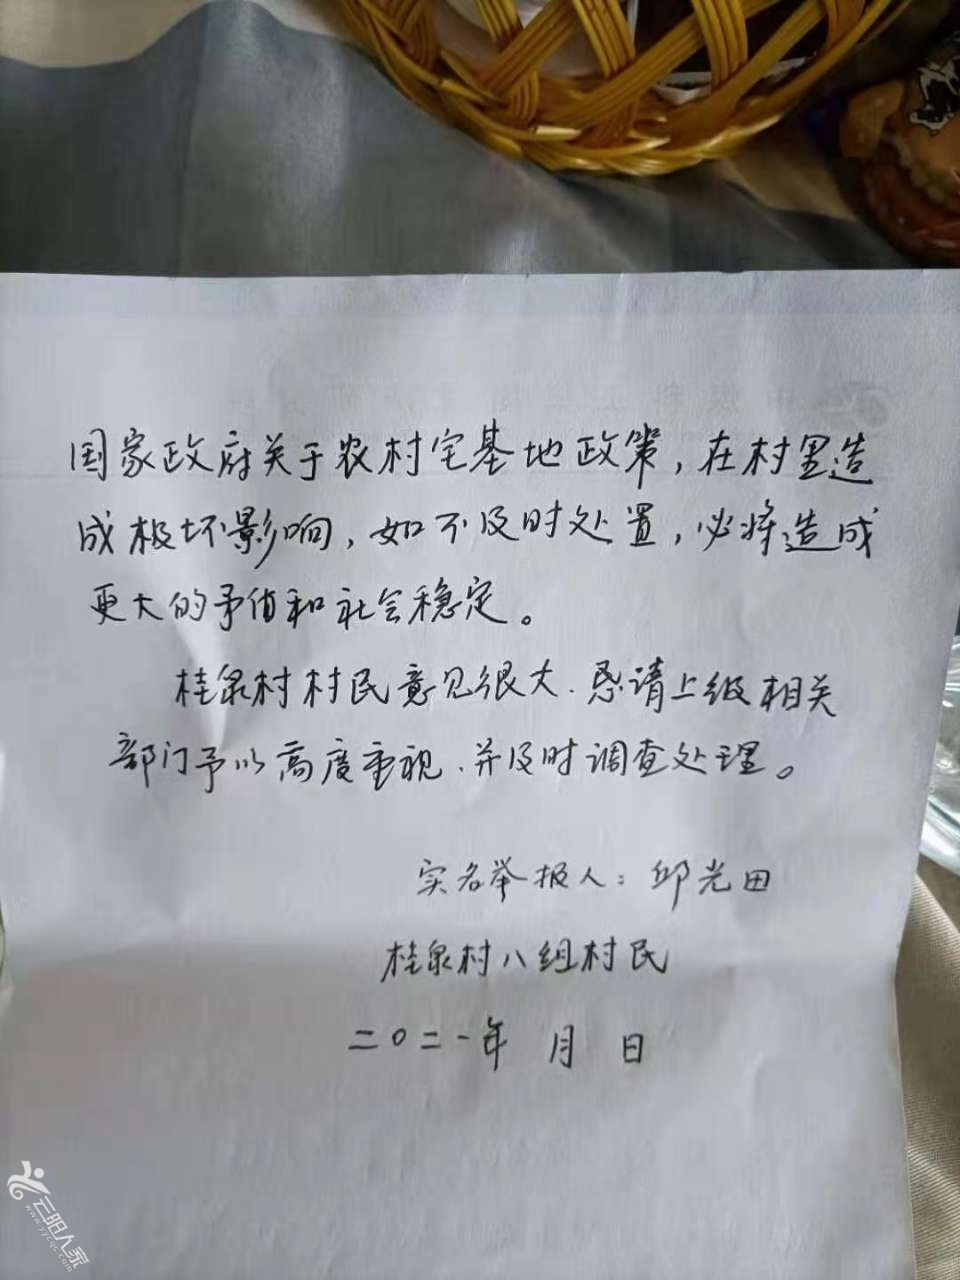 国家政府关于农村宅基地政策，在村里造
成极坏影响，如不及时处置，必将造成
更大的矛盾和社会稳定。
桂泉村村民意见很大．恳请上级相关
部门予以高度重视．并及时调查处理。
实名举报人：邱光田
桂泉村八组村民
二〇二一年 月 日
云阳人家
www.yycqc.com